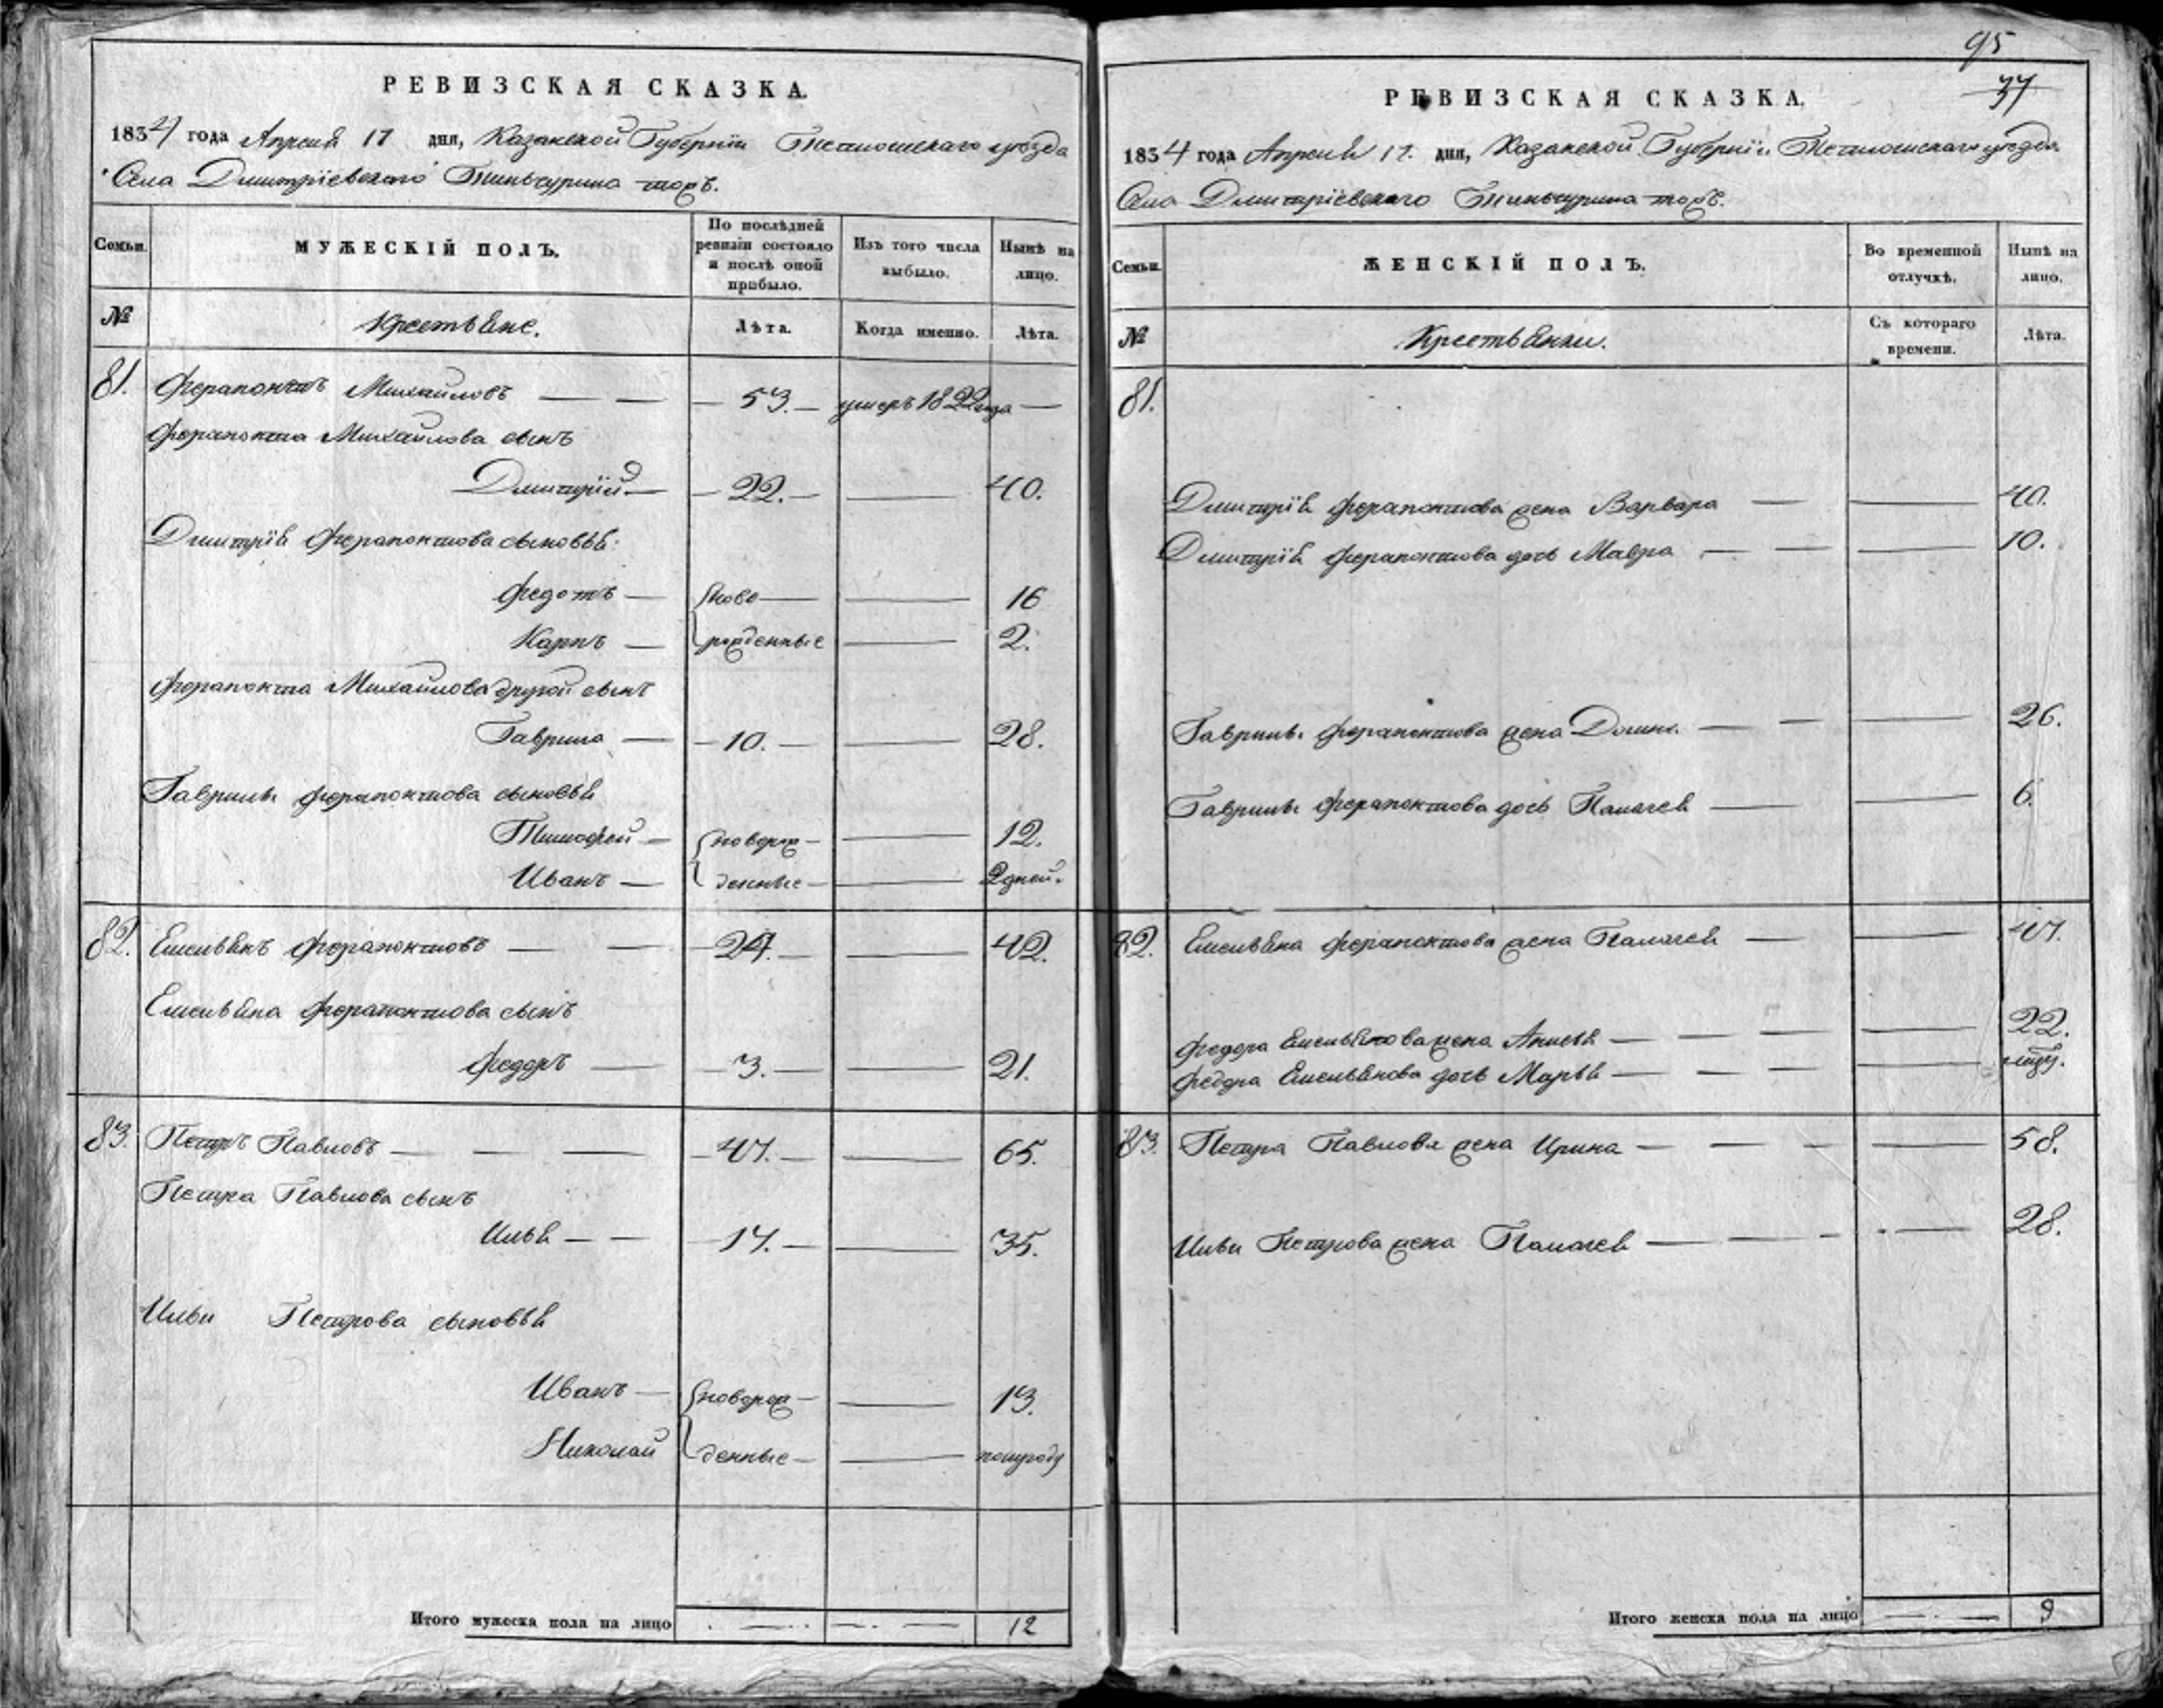 РЕВИЗСКАЯ СКАЗКА.
1834 года Апреля 17 дня, Казанской Губернiи Тетюшскаго уѣзда
Села Дмитрiевскаго Тиньчурина тожъ.
Семьи.
МУЖЕСКIЙ ПОЛЪ.
По послѣдней
ревизiи состояло
и послѣ оной
прибыло.
Изъ того числа
выбыло.
Нынѣ на
лицо.
№
Крестьяне.
Лѣта.
Когда именно.
Лѣта.
81. Ферапонтъ Михайловъ — — — 53. — умеръ 1822 года —
Ферапонта Михайлова сынъ
Дмитрiй — — 22. — — 40.
Дмитрiя Ферапонтова сыновья:
Федотъ — ново — — 16
Карпъ — рожденные — 2.
Ферапонта Михайлова другой сынъ
Гаврила — — 10. — — 28.
Гаврилы Ферапонтова сыновья
Тимофей — новорож — — 12.
Иванъ — денные — — 2 дней.
82. Емельянъ Ферапонтовъ — — — 24. — — 42.
Емельяна Ферапонтова сынъ
Федоръ — — 3. — — 21.
83. Петръ Павловъ — — — — 47. — — 65.
Петра Павлова сынъ
Илья — — — 17. — — 35.
Ильи Петрова сыновья
Иванъ — новорож — — 13.
Николай денные — — полугоду
Итого мужеска пола на лицо 12
95
37
РЕВИЗСКАЯ СКАЗКА.
1834 года Апреля 17. дня, Казанской Губернiи Тетюшскаго уѣзда
Села Дмитрiевскаго Тиньчурина тожъ.
Семьи.
ЖЕНСКIЙ ПОЛЪ.
Во временной
отлучкѣ.
Нынѣ на
лицо.
№
Крестьянки.
Съ котораго
времени.
Лѣта.
81.
Дмитрiя Ферапонтова жена Варвара — — 40.
Дмитрiя Ферапонтова дочь Мавра — — — 10.
Гаврилы Ферапонтова жена — — — 26.
Гаврилы Ферапонтова дочь Палагея — — 6.
82. Емельяна Ферапонтова жена Палагея — — 47.
Федора Емельянова жена Анисья — — — — 22.
Федора Емельянова дочь Марья — — — —
83. Петра Павлова жена Ирина — — — — 58.
Ильи Петрова жена Палагея — — — — 28.
Итого женска пола на лицо 9